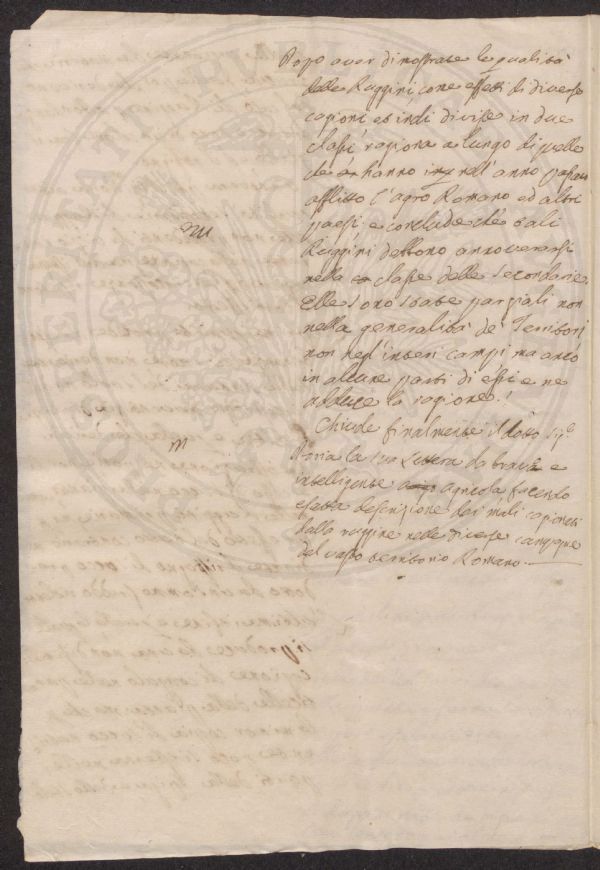 Dopo aver dimostrate le qualità
delle Ruggini come effetti di diverse
cagioni ed indi divise in due
classi ragiona a lungo di quelle
che hanno nell'anno passato
afflitto l'agro Romano ed altri
paesi, e conclude che tali
Ruggini debbono annoverarsi
nella classe delle secondarie
Elle sono state parziali non
nella generalità de' Territorj
non negl'interi campi ma
in alcune parti di essi e ne
adduce la ragione.
Chiude finalmente il dotto Sig.e
la sua lettera da bravo e
intelligente agricola facendo
esatta descrizione dei mali cagionati
dalla ruggine nelle diverse campagne
del vasto territorio Romano.